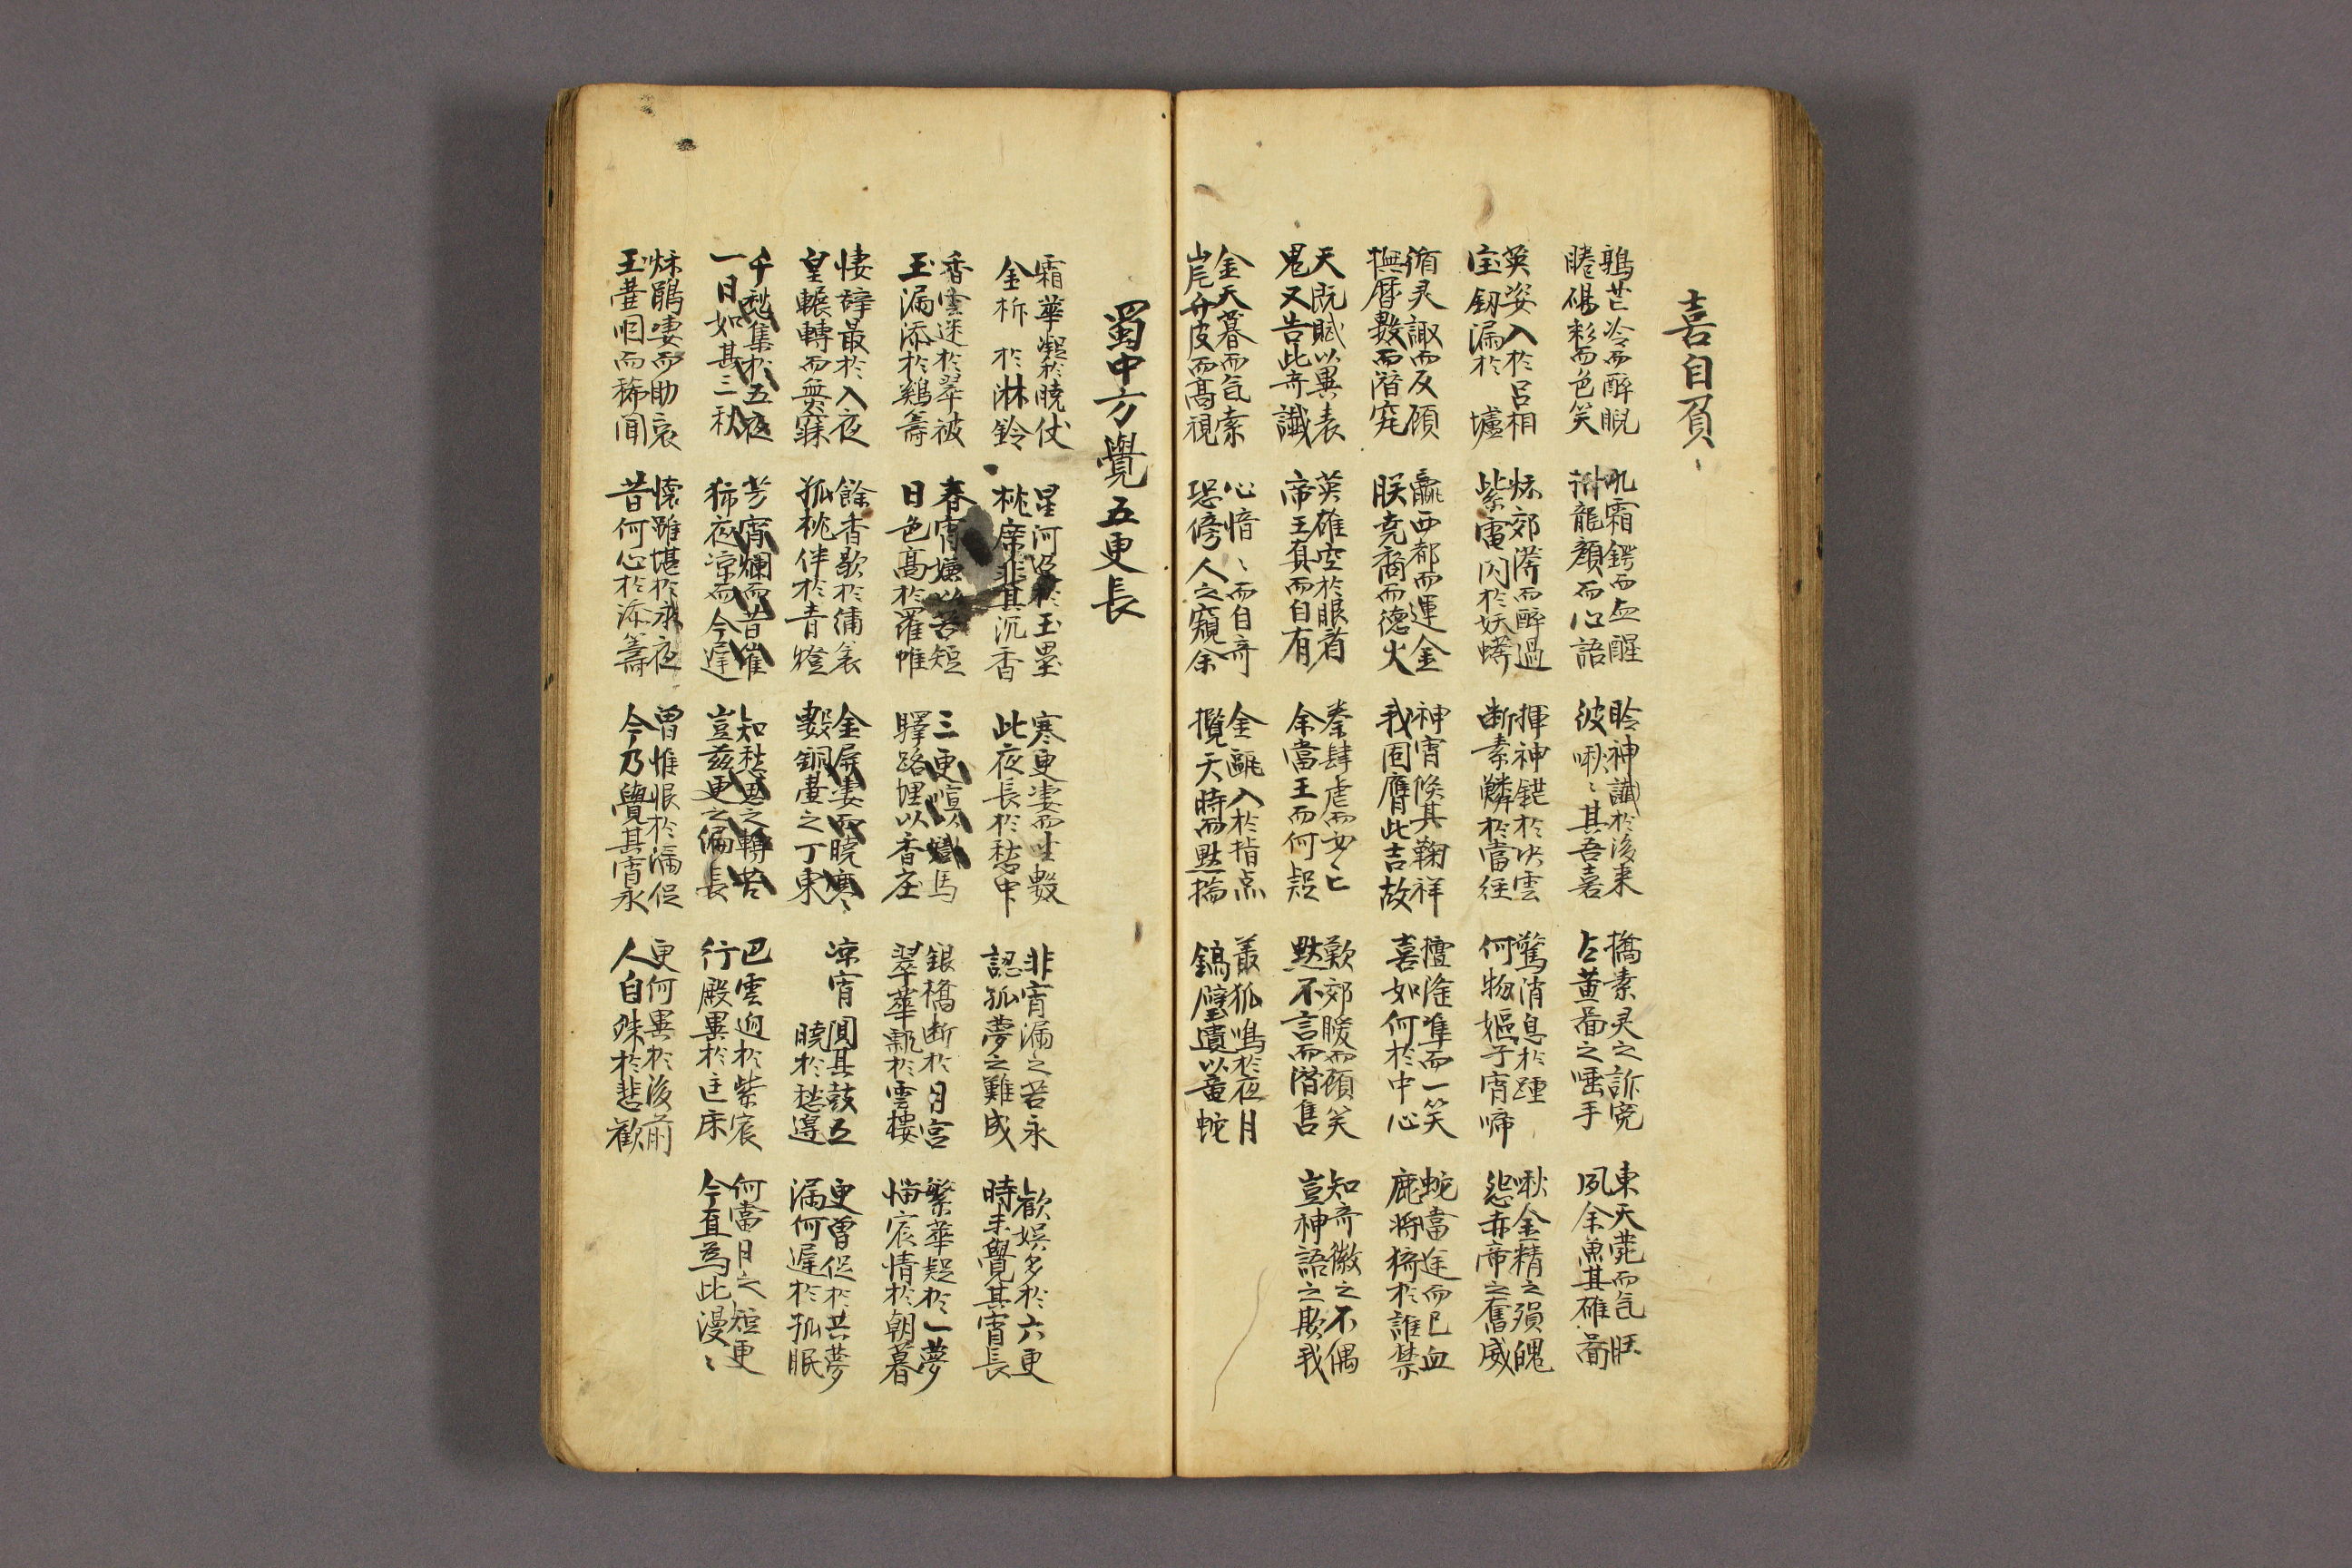 喜自負
芒冷而醉睨
睠碭彩而色笑
吼霜鍔而血醒
龍顔而心語
聆神讖於後来
彼啾〻其吾喜
素灵之訴寃
占黃啚之唾手
東天蕘而气旺
夙余兼其確啚
英姿入於呂相
宝釰漏於 壚
郊澤而醉過
紫電閃於妖蟒
揮神鋩於決雲
断素鱗於當徑
驚消息於踵
何物嫗子宵啼
啾金精之殞魄
怨赤帝之奮威
循灵諏而反顧
撫曆數而潛究
羸西都而運金
朕堯裔而德火
神宵倏其鞠祥
我固膺此吉故
擅隆準而一笑
喜如何於中心
蛇當途而已血
鹿將猗於誰禁
天既賦以異表
鬼又告此奇讖
英確空於眼看
帝王真而自有
秦肆虐而安亡
余當王而何疑
歎郊曖而顧笑
默不言而潛售
知奇徽之不偶
豈神語之欺我
金天暮而气索
皮而高視
心愔〻而自奇
恐傍人之窺余
金甌入於指点
攬天時而默揣
叢狐鳴於夜月
鎬璧遺以童蛇
蜀中方覺五更長
霜華凝於曉仗
金柝 於淋鈴
星河 於玉壘
枕席非其沉香
寒更凄而坐數
此夜長於愁中
非宵漏之苦永
認孤夢之難成
歡娛多於六更
時未覺其宵長
香雲迷於翠被
玉漏添於鷄籌
春宵嫌以苦短
日色高於羅帷
三更喧以 馬
驛路埋以香庄
銀橋断於月宮
翠華飄於雲棧
繁華疑於一夢
悄宸情於朝暮
悽辞最於入夜
皇輾轉而無寐
餘香歇於浦衾
孤枕伴於青燈
金屏凄而曉寒〻
數銅壷之丁東
凉宵 其鼓五
曉於愁邊
更曾促於共夢
漏何遲於孤眠
千愁集於五夜
一日如其三秋
芳宵爛而昔催
夜凉而今遲
知愁思之轉苦
豈玆更之偏長
巴雲迥於紫宸
行殿異於匡床
何當日之短更
今直爲此漫〻
秭鵑凄而助哀
玉壷咽而稀聞
懷雖堪於永夜
昔何心於添籌
曾惟恨於漏促
今乃覺其宵永
更何異於後前
人自殊於悲歡